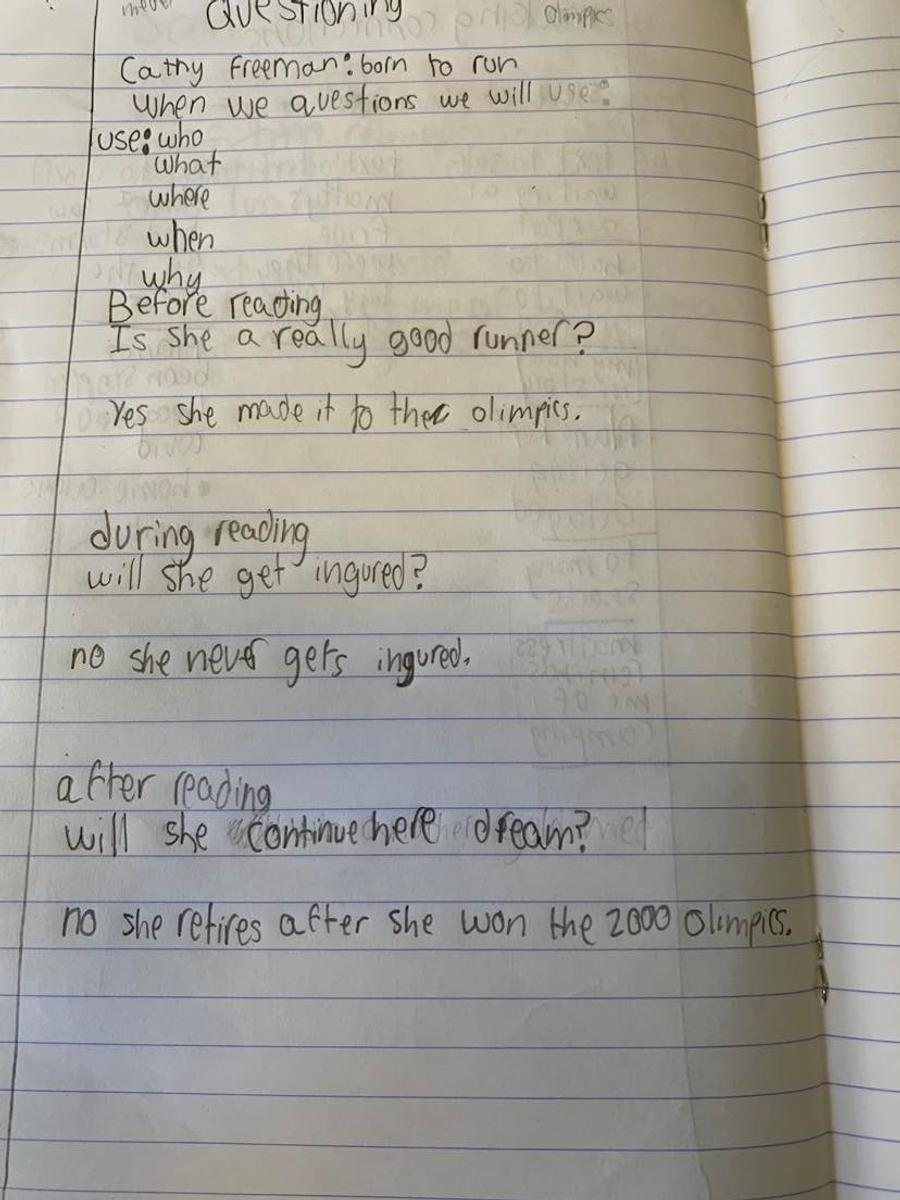 Questioning
Olimpics
Cathy freeman: born to run
When we questions we will use:
use: who
what
where
when
why
Before reading
Is she a really good runner?
Yes she made it to the olimpics.
during reading
will she get ingured?
no she never gets ingured.
after reading
will she continue here dream?
no she retires after she won the 2000 Olimpics.